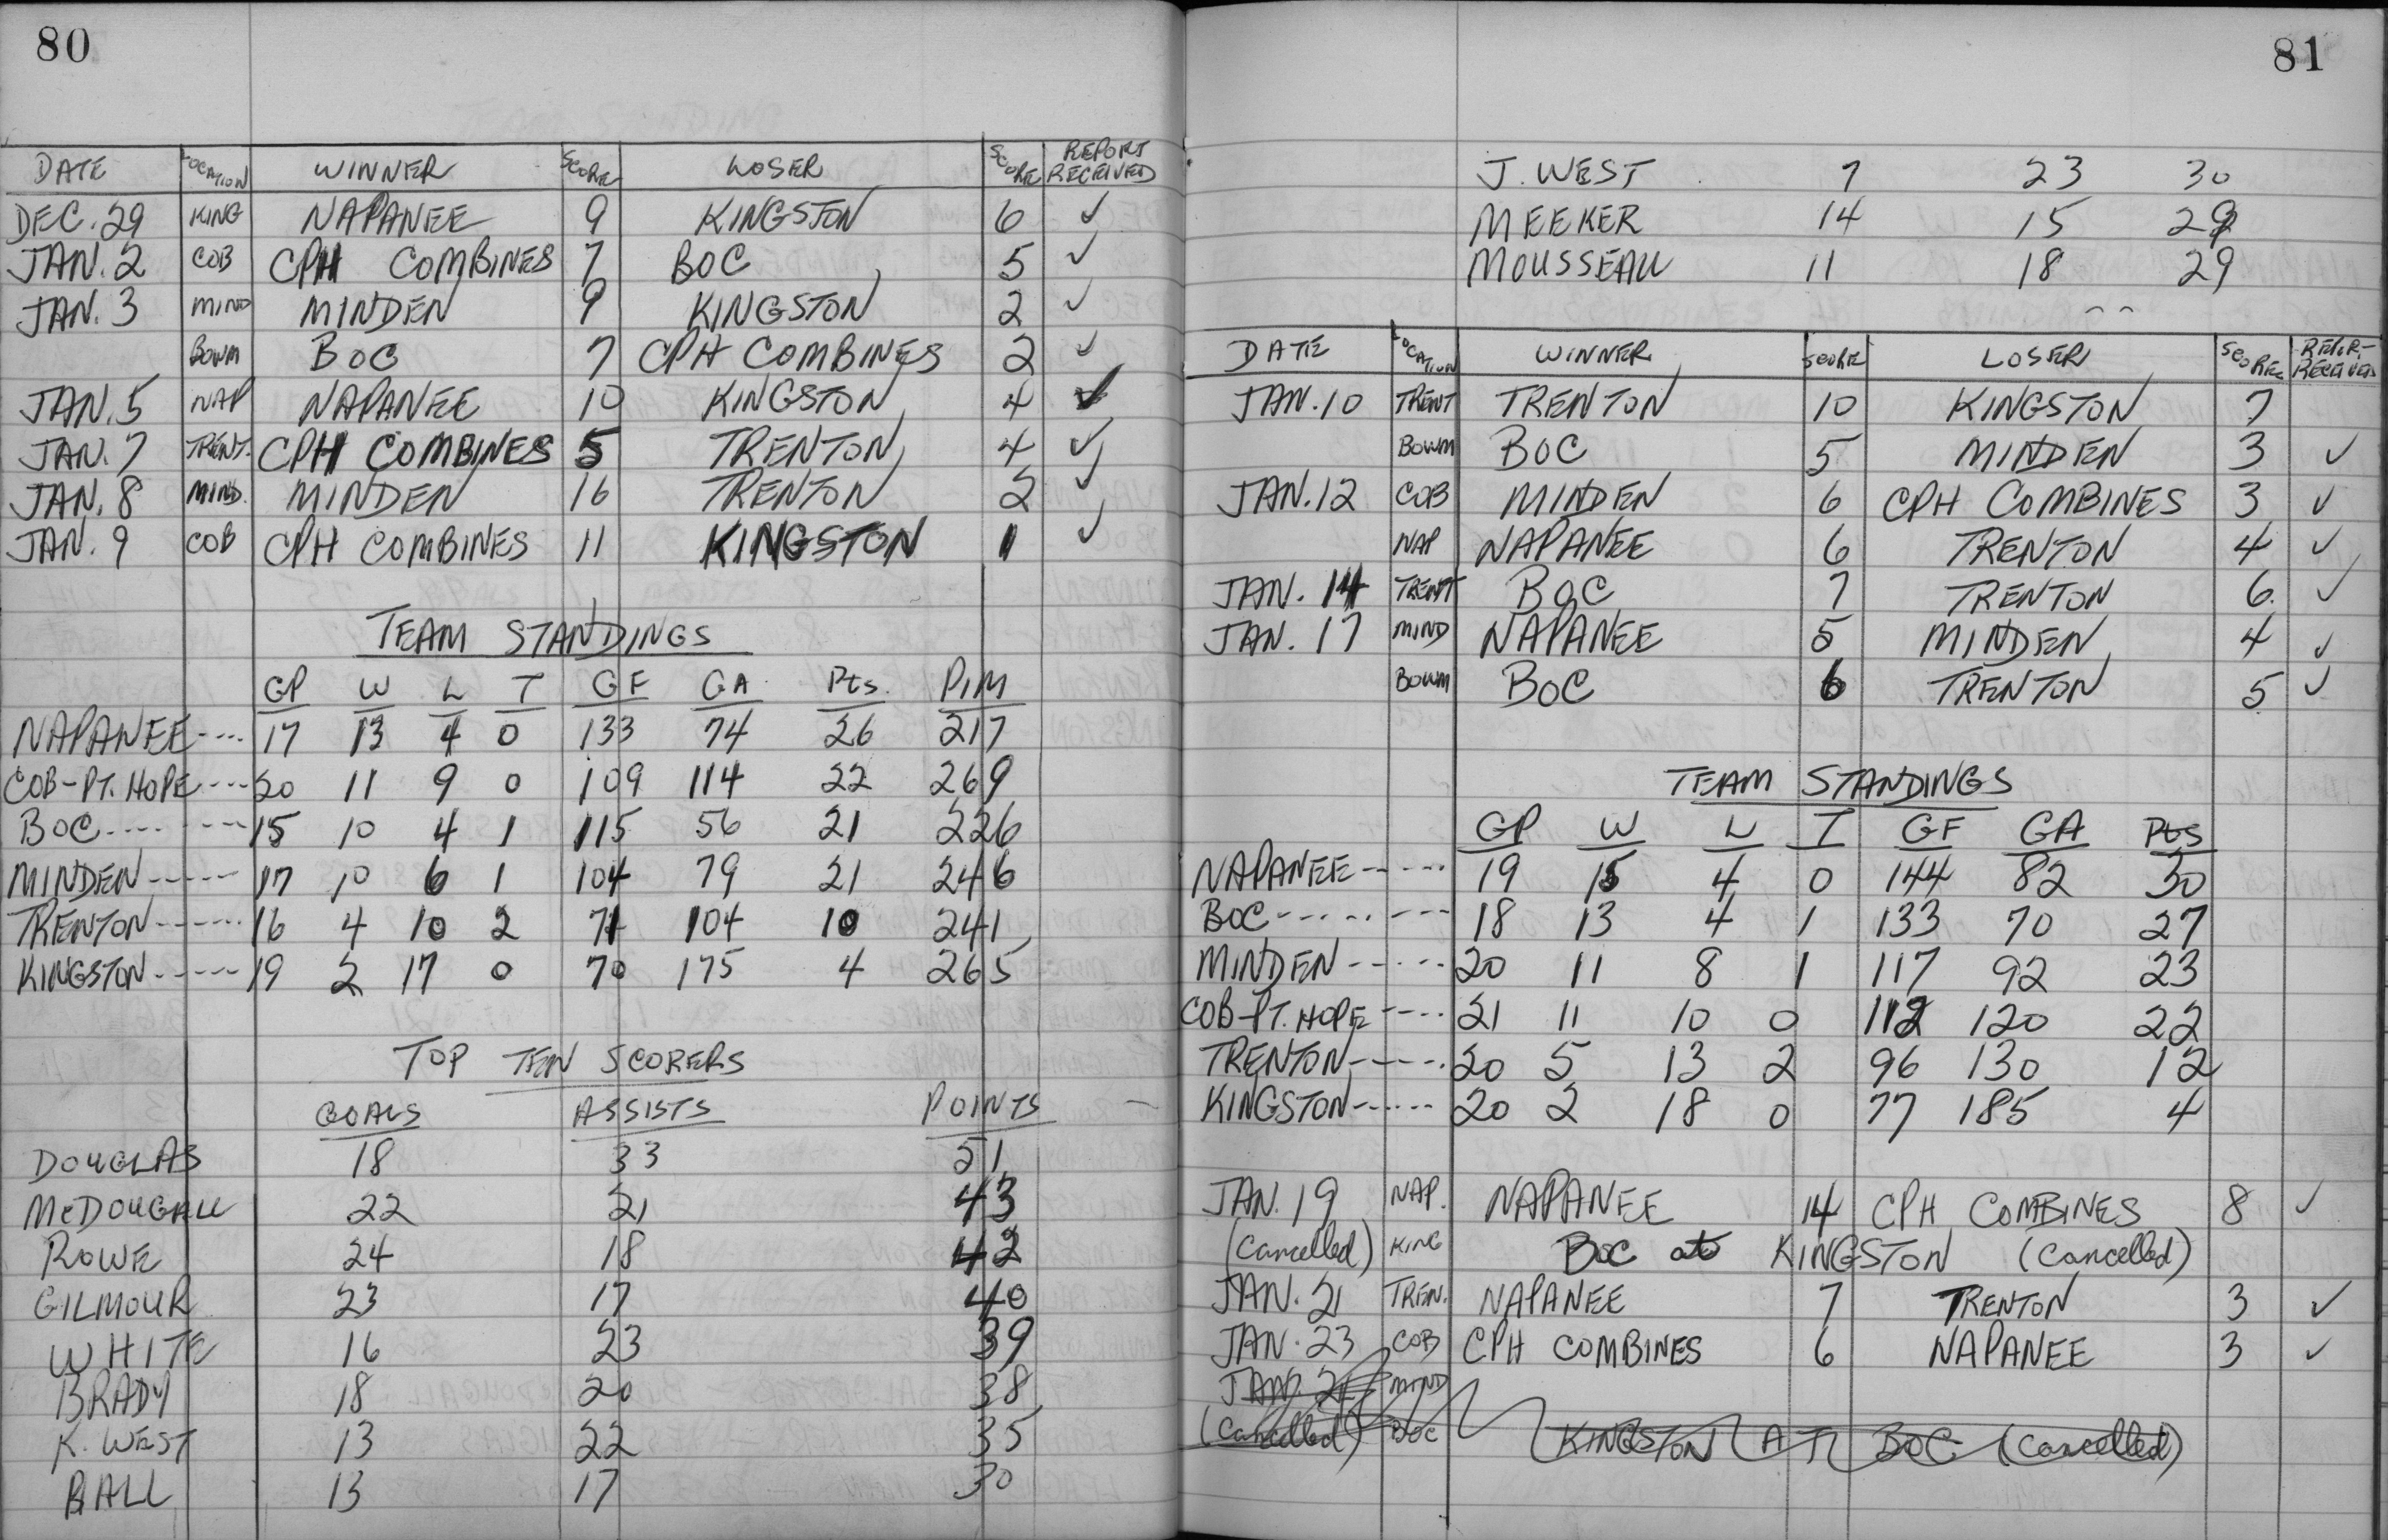 80
DATE LOCATION WINNER SCORE LOSER SCORE REPORT RECEIVED
DEC. 29 KING NAPANEE 9 KINGSTON 6 ✓
JAN. 2 COB CPH COMBINES 7 BOC 5 ✓
JAN. 3 MIND MINDEN 9 KINGSTON 2 ✓
BOWM BOC 7 CPH COMBINES 2 ✓
JAN. 5 NAP NAPANEE 10 KINGSTON 4 ✓
JAN. 7 TRENT. CPH COMBINES 5 TRENTON 4 ✓
JAN. 8 MIND. MINDEN 16 TRENTON 2 ✓
JAN. 9 COB CPH COMBINES 11 KINGSTON 1 ✓
TEAM STANDINGS
GP W L T GF GA Pts. PIM
NAPANEE---- 17 13 4 0 133 74 26 217
COB-PT. HOPE---- 20 11 9 0 109 114 22 269
BOC---- ---- 15 10 4 1 115 56 21 226
MINDEN----- 17 10 6 1 104 79 21 246
TRENTON------ 16 4 10 2 71 104 10 241
KINGSTON----- 19 2 17 0 70 175 4 265
TOP TEN SCORERS
GOALS ASSISTS POINTS
DOUGLAS 18 33 51
McDOUGALL 22 21 43
ROWE 24 18 42
GILMOUR 23 17 40
WHITE 16 23 39
BRADY 18 20 38
K. WEST 13 22 35
BALL 13 17 30
81
J. WEST 7 23 30
MEEKER 14 15 29
MOUSSEAU 11 18 29
DATE LOCATION WINNER SCORE LOSER SCORE REPORT RECEIVED
JAN. 10 TRENT TRENTON 10 KINGSTON 7
BOWM BOC 5 MINDEN 3 ✓
JAN. 12 COB MINDEN 6 CPH COMBINES 3 ✓
NAP NAPANEE 6 TRENTON 4 ✓
JAN. 14 TRENT BOC 7 TRENTON 6. ✓
JAN. 17 MIND NAPANEE 5 MINDEN 4 ✓
BOWM BOC 6 TRENTON 5 ✓
TEAM STANDINGS
GP W L T GF GA Pts
NAPANEE----- 19 15 4 0 144 82 30
BOC-------- 18 13 4 1 133 70 27
MINDEN----- 20 11 8 1 117 92 23
COB-PT. HOPE---- 21 11 10 0 112 120 22
TRENTON----- 20 5 13 2 96 130 12
KINGSTON------ 20 2 18 0 77 185 4
JAN. 19 NAP. NAPANEE 14 CPH COMBINES 8 ✓
(Cancelled) KING BOC at KINGSTON (Cancelled)
JAN. 21 TREN. NAPANEE 7 TRENTON 3 ✓
JAN. 23 COB CPH COMBINES 6 NAPANEE 3 ✓
JAN. 24 MIND
(Cancelled) BOC KINGSTON AT BOC (Cancelled)